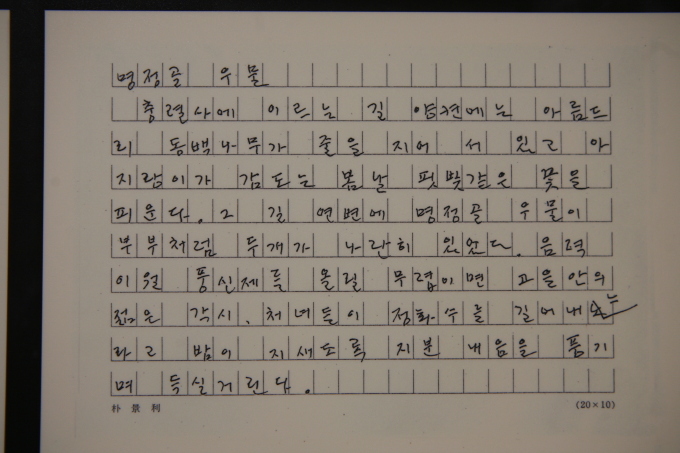 명정골 우물
충렬사에 이르는 길 양켠에는 아름드
리 동백나무가 줄을 지어 서 있고 아
지랑이가 감도는 봄날 핏빛같은 꽃을
피운다. 그 길 연변에 명정골 우물이
부부처럼 두개가 나란히 있었다. 음력
이월 풍신제를 올릴 무렵이면 고을안의
젊은 각시, 처녀들이 정화수를 길어내느
라고 밤이 지새도록 지분 내음을 풍기
며 득실거린다.
朴景利 (20×10)